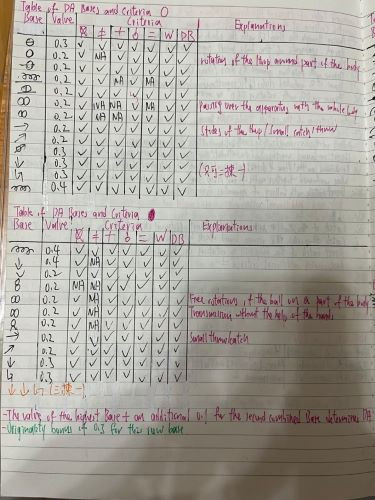 Table of DA Bases and Criteria O
Base Value Criteria Explanations
≠ + = W DB
0.3
0.2
0.2 rotation of the Hoop around part of the body
0.2 NA NA
0.2
0.2 NA NA NA Passing over the apparatus with the whole body
0.2 NA NA
0.2 Strides of the Hoop / Small catch / throw
0.2
0.3
0.3 (只可二揀一)
0.3
0.4
Table of DA Bases and Criteria
Base Value Criteria Explanations
≠ + = W DB
0.4
0.4 NA
0.2
0.2 NA NA
0.2 NA Free rotations of the ball on a part of the body
0.2 NA Transmission without the help of the hands
0.2 NA
0.2 Small throw/catch
0.2
0.3
0.3
(三揀一)
-The value of the highest Base + an additional 0.1 for the second combined Base determines DA
-Originality bonus of 0.3 for the new base